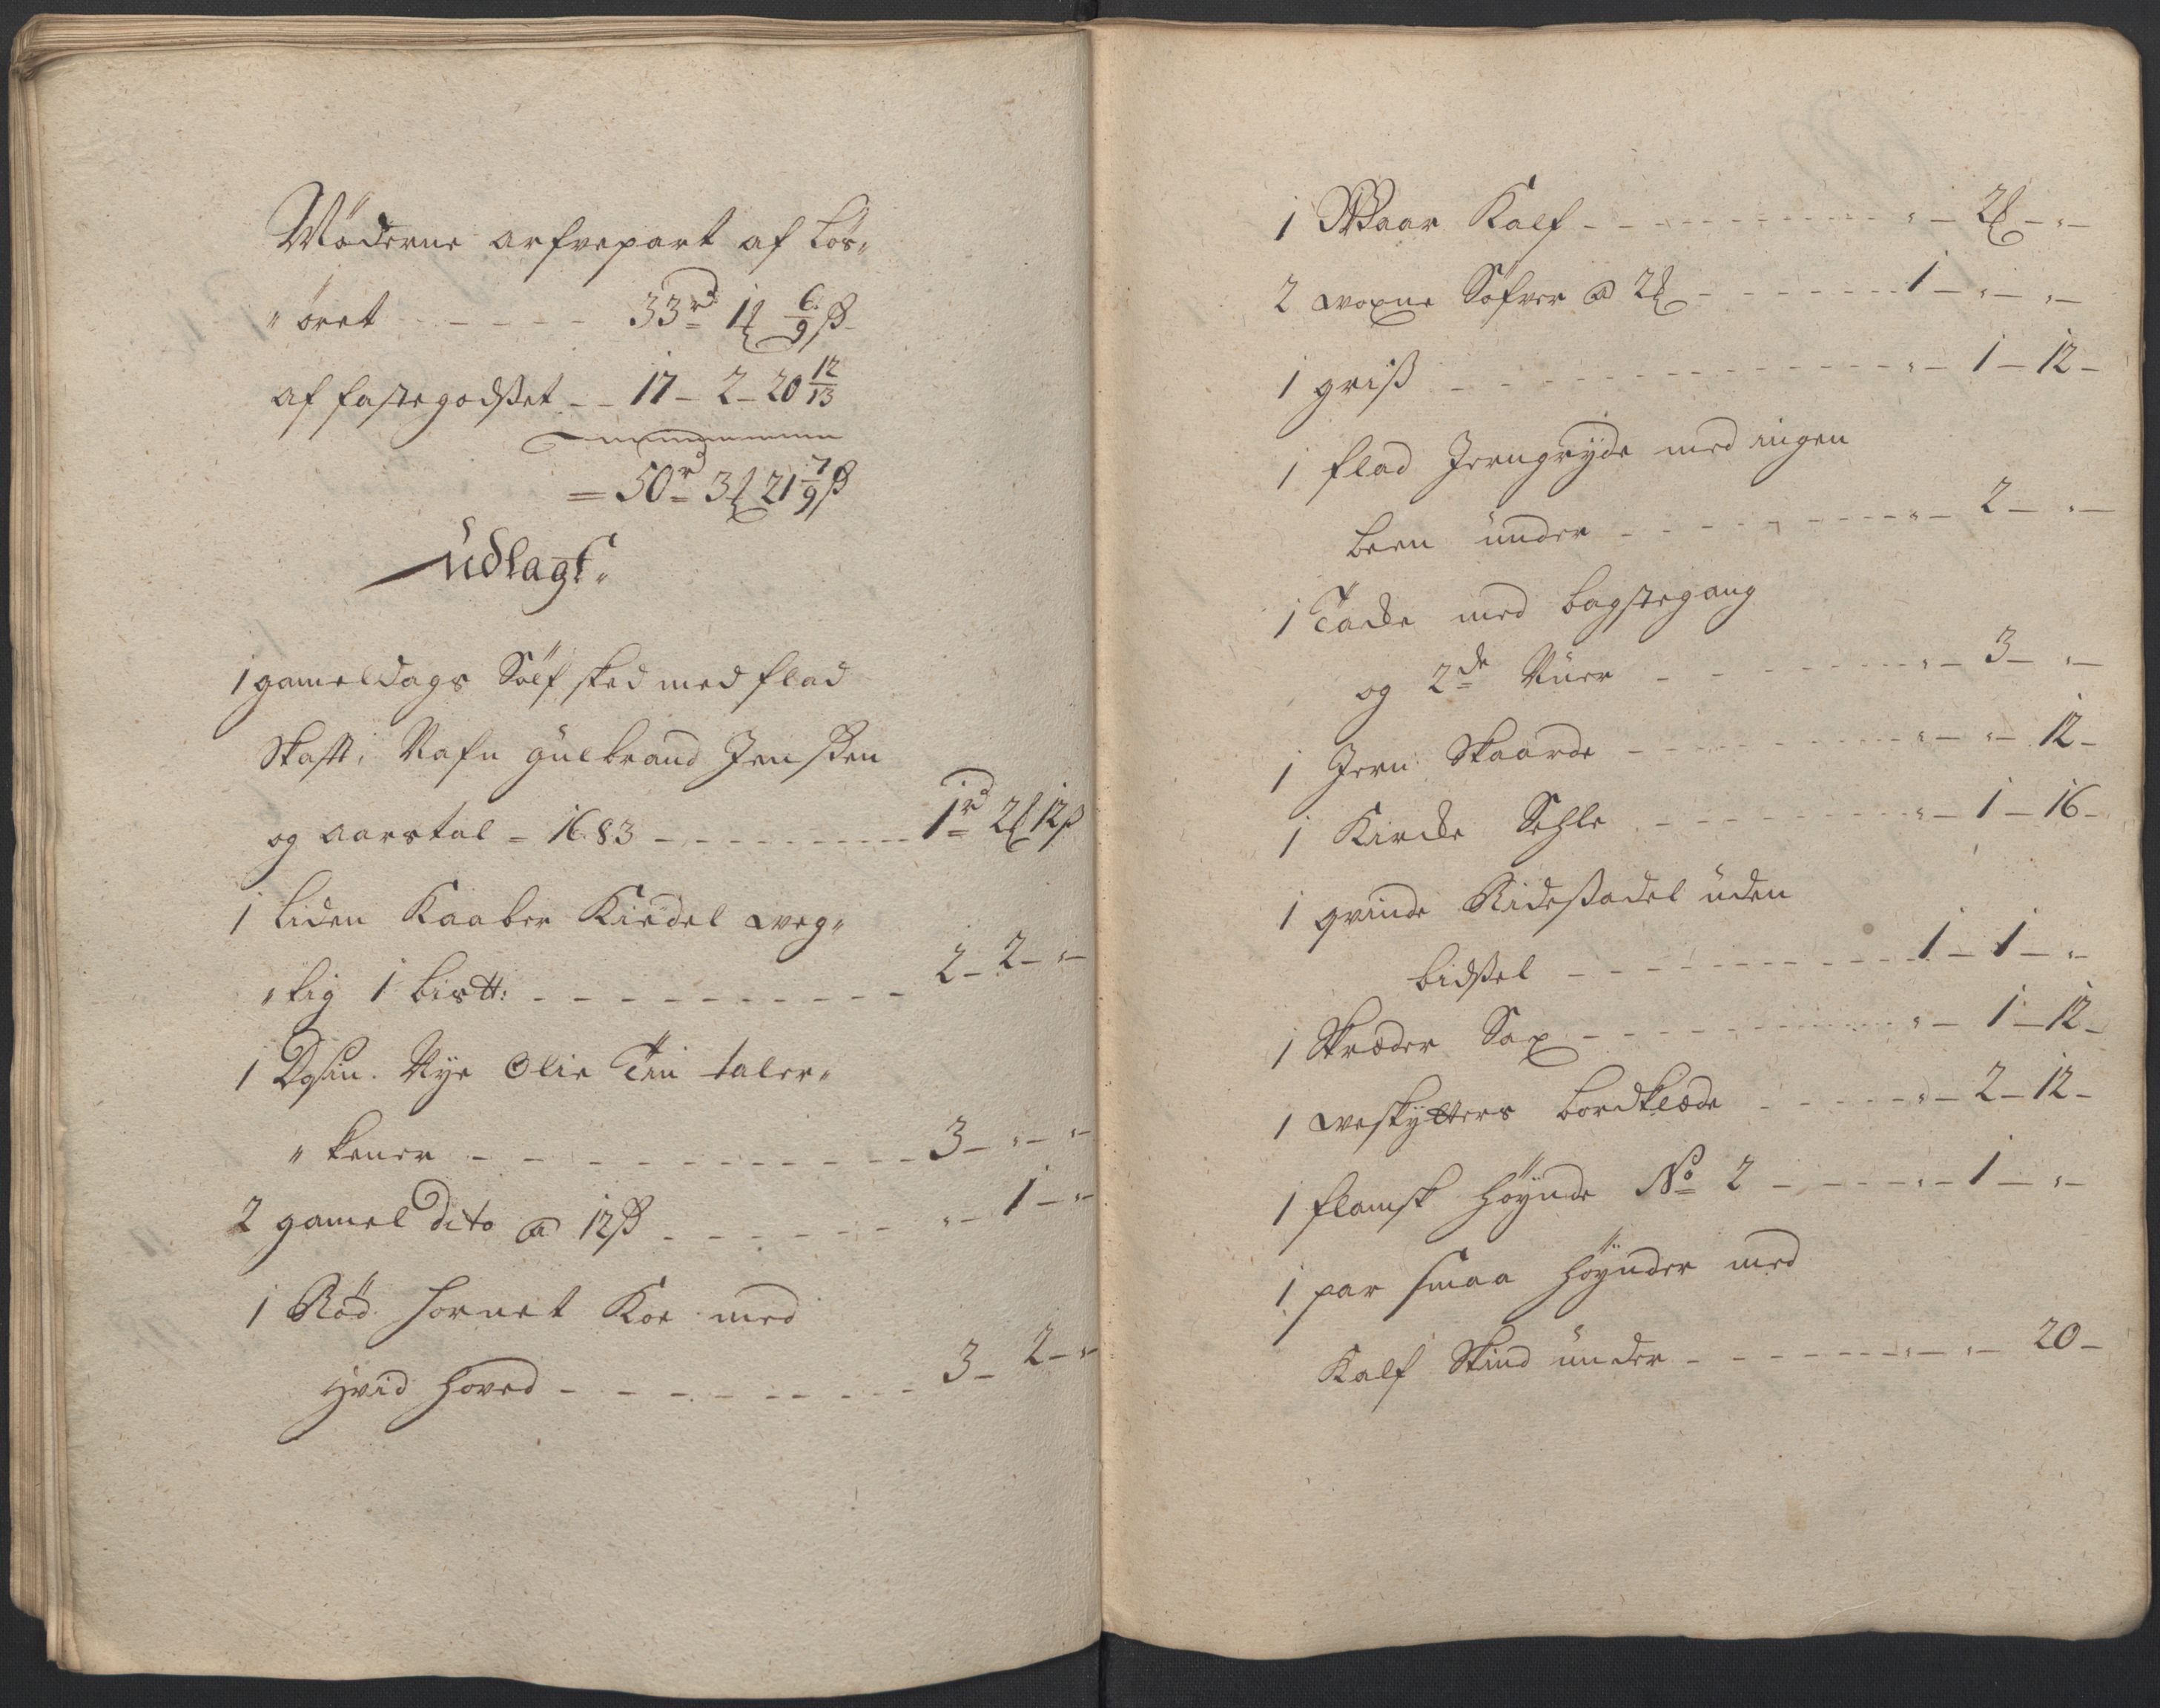 Möderne arfvepart af Lös„
„öret - - - - - - 33 rd 1 ₰ 6/9 ß
af fastegodsset - - 17 - 2 - 20 12/13
= 50 r 3 ₰ 21 7/9 ß
Udlagt.
1 gameldags Sölf sked med flad
Skafft, Nafn Gulbrand Jenssen
og aarstal = 1683 - - - - - - 1 rd 2 ₰ 12 ß
1 Liden Kaaber Kiedel weg„
„tig 1 bis tt: - - - - - - - - - - 2 - 2 - „ -
1 Dosin. Nye Tin taler„
„kener - - - - - - - - - - 3 - „ - „ -
2 gamel Dito a 12 ß - - - - - - „ - 1 - „
1 Röd hornet Koe med
Hvid Hoved - - - - - - - - - - 3 - 2 - „
1 Waar Kalf - - - - - - - - - „ - 2 ₰ - „ -
2 woxne Söfver a 2 ₰ - - - - - - - 1 - „ - „ -
1 griß - - - - - - - - - - - - „ - 1 - 12 -
1 flad Jerngryde med ingen
been under - - - - - - - - „ - 2 - „ -
1 med bagstegang
og 2de - - - - - - - - „ - 3 - „ -
1 Jern Skaarde - - - - - - - - „ - „ - 12 -
1 Kircke Sehle - - - - - - - - „ - 1 - 16 -
1 qvinde Ridessadel uden
bidssel - - - - - - - - - - 1 - 1 - „ -
1 Skræder Sax - - - - - - - - „ - 1 - 12 -
1 weskytters bordklæde - - - - - „ - 2 - 12 -
1 flamsk Höynde No 2 - - - - „ - 1 - „ -
1 par smaa Höynder med
Kalf Skind under - - - - - - - „ - „ - 20 -